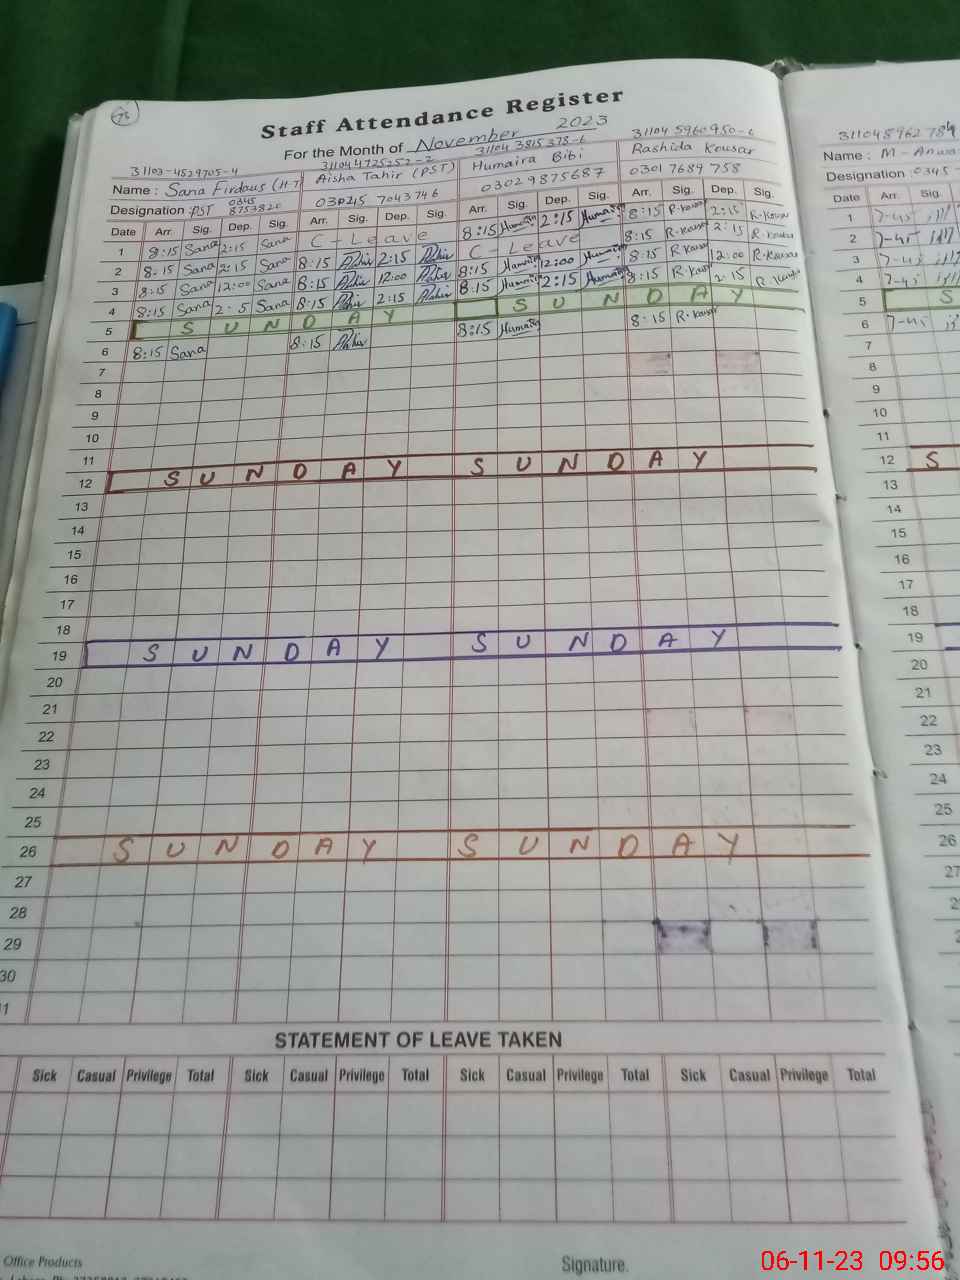 75
Staff Attendance Register
For the Month of November 2023
31103-4529705-4 311044725252-2 31104 3815378-6 31104 5960950-6
Name : Sana Firdous (H-T Aisha Tahir (PST) Humaira Bibi Rashida Kousar
Designation : PST 0345 8757820 030215 7043746 03029875687 0301 7689 758
Date Arr. Sig. Dep. Sig. Arr. Sig. Dep. Sig. Arr. Sig. Dep. Sig. Arr. Sig. Dep. Sig.
1 8:15 Sana 2:15 Sana C - Leave 8:15 Humaira 2:15 Humaira 8:15 R-Kousar 2:15 R-Kousar
2 8:15 Sana 2:15 Sana 8:15 Tahir 2:15 Tahir C - Leave 8:15 R-Kousar 2:15 R-Kousar
3 8:15 Sana 12:00 Sana 8:15 Tahir 12:00 Tahir 8:15 Humaira 12:00 Humaira 8:15 R-Kousar 12:00 R-Kousar
4 8:15 Sana 2-5 Sana 8:15 Tahir 2:15 Tahir 8:15 Humaira 2:15 Humaira 8:15 R-Kousar 2:15 R-Kousar
5 S U N D A Y S U N D A Y
6 8:15 Sana 8:15 Tahir 8:15 Humaira 8:15 R-Kousar
7
8
9
10
11
12 S U N D A Y S U N D A Y
13
14
15
16
17
18
19 S U N D A Y S U N D A Y
20
21
22
23
24
25
26 S U N D A Y S U N D A Y
27
28
29
30
STATEMENT OF LEAVE TAKEN
Sick Casual Privilege Total Sick Casual Privilege Total Sick Casual Privilege Total Sick Casual Privilege Total
Office Products
Signature.
Name : M-Anwa
Designation 0345-
Date Arr. Sig.
1 7-45
2 7-45
3 7-45
4 7-45
5 S
6 7-45
7
8
9
10
11
12 S
13
14
15
16
17
18
19
20
21
22
23
24
25
26
27
06-11-23 09:56